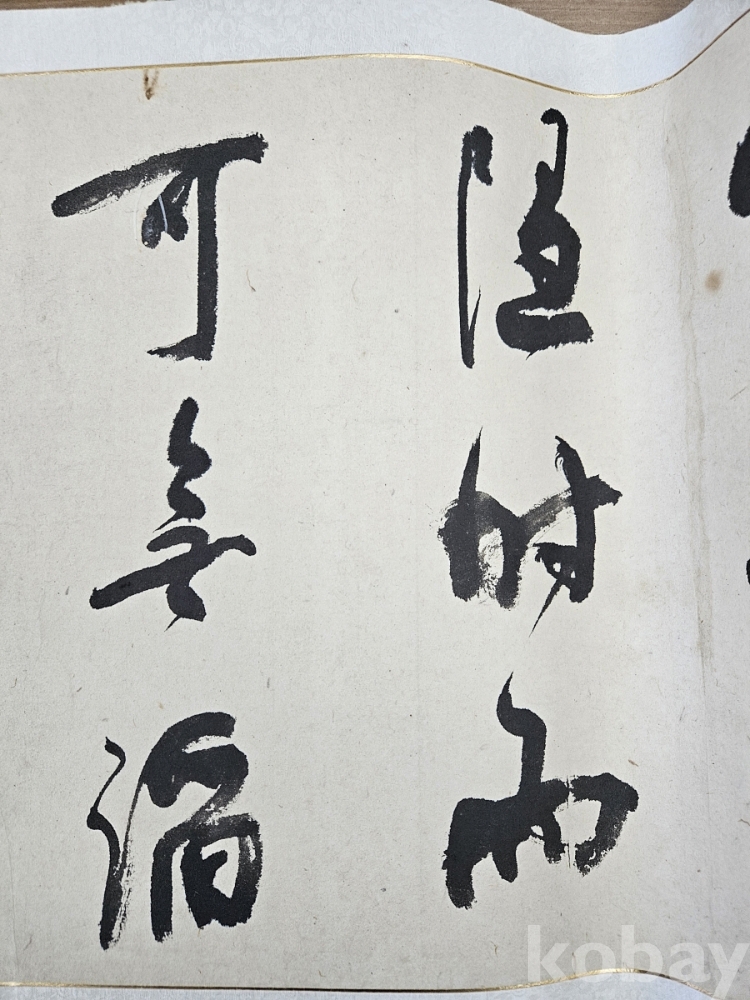 隨時而
可無禍
kobay